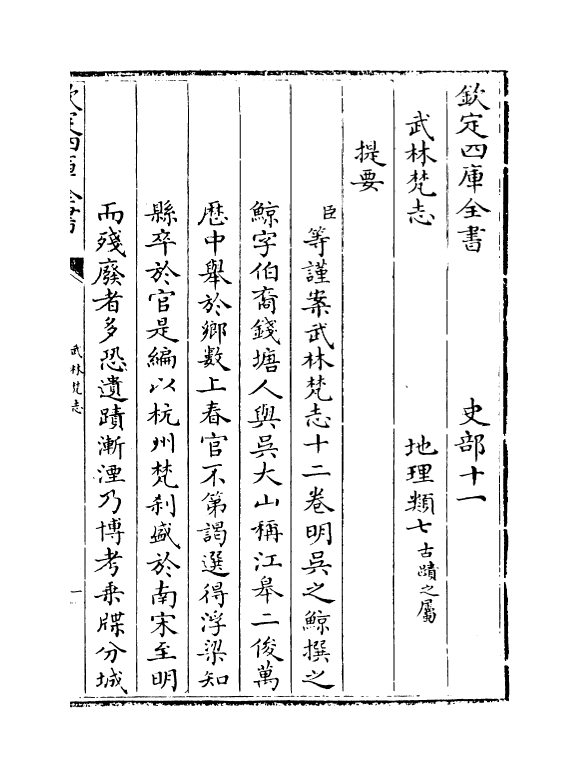 欽定四庫全書 史部十一
武林梵志 地理類七古蹟之屬
提要
臣等謹案武林梵志十二卷明吳之鯨撰之
鯨字伯裔錢塘人與吳大山稱江皋二俊萬
歴中舉於鄉数上春官不第謁選得浮梁知
縣卒於官是編以杭州梵刹盛於南宋至明
而殘廢者多恐遺蹟漸湮乃博考乗牒分城
欽定四庫全書
武林梵志
一